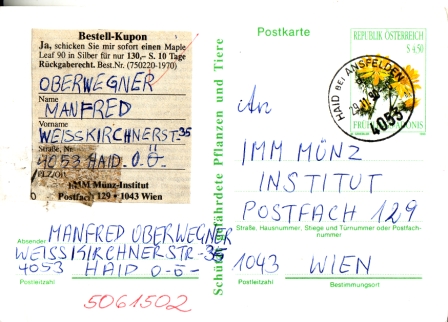 Bestell-Kupon
Ja, schicken Sie mir sofort einen Maple
Leaf 90 in Silber für nur 130,– S. 10 Tage
Rückgaberecht. Best.Nr. (750220-1970)
OBERWEGNER
Name
MANFRED
Vorname
WEISSKIRCHNERST-35
Straße, Nr.
4053 HAID O.Ö.
PLZ/Ort
IMM Münz-Institut
Postfach 129 • 1043 Wien
Absender
MANFRED OBERWEGNER
WEISSKIRCHNERSTR-35
4053 HAID O-Ö-
Postleitzahl
5061502
Schützt gefährdete Pflanzen und Tiere
Postkarte
REPUBLIK ÖSTERREICH
S 4,50
HAID BEI ANSFELDEN
4053
An
IMM MÜNZ
INSTITUT
POSTFACH 129
Straße, Hausnummer, Stiege und Türnummer oder Postfach-
nummer
1043 WIEN
Postleitzahl Bestimmungsort